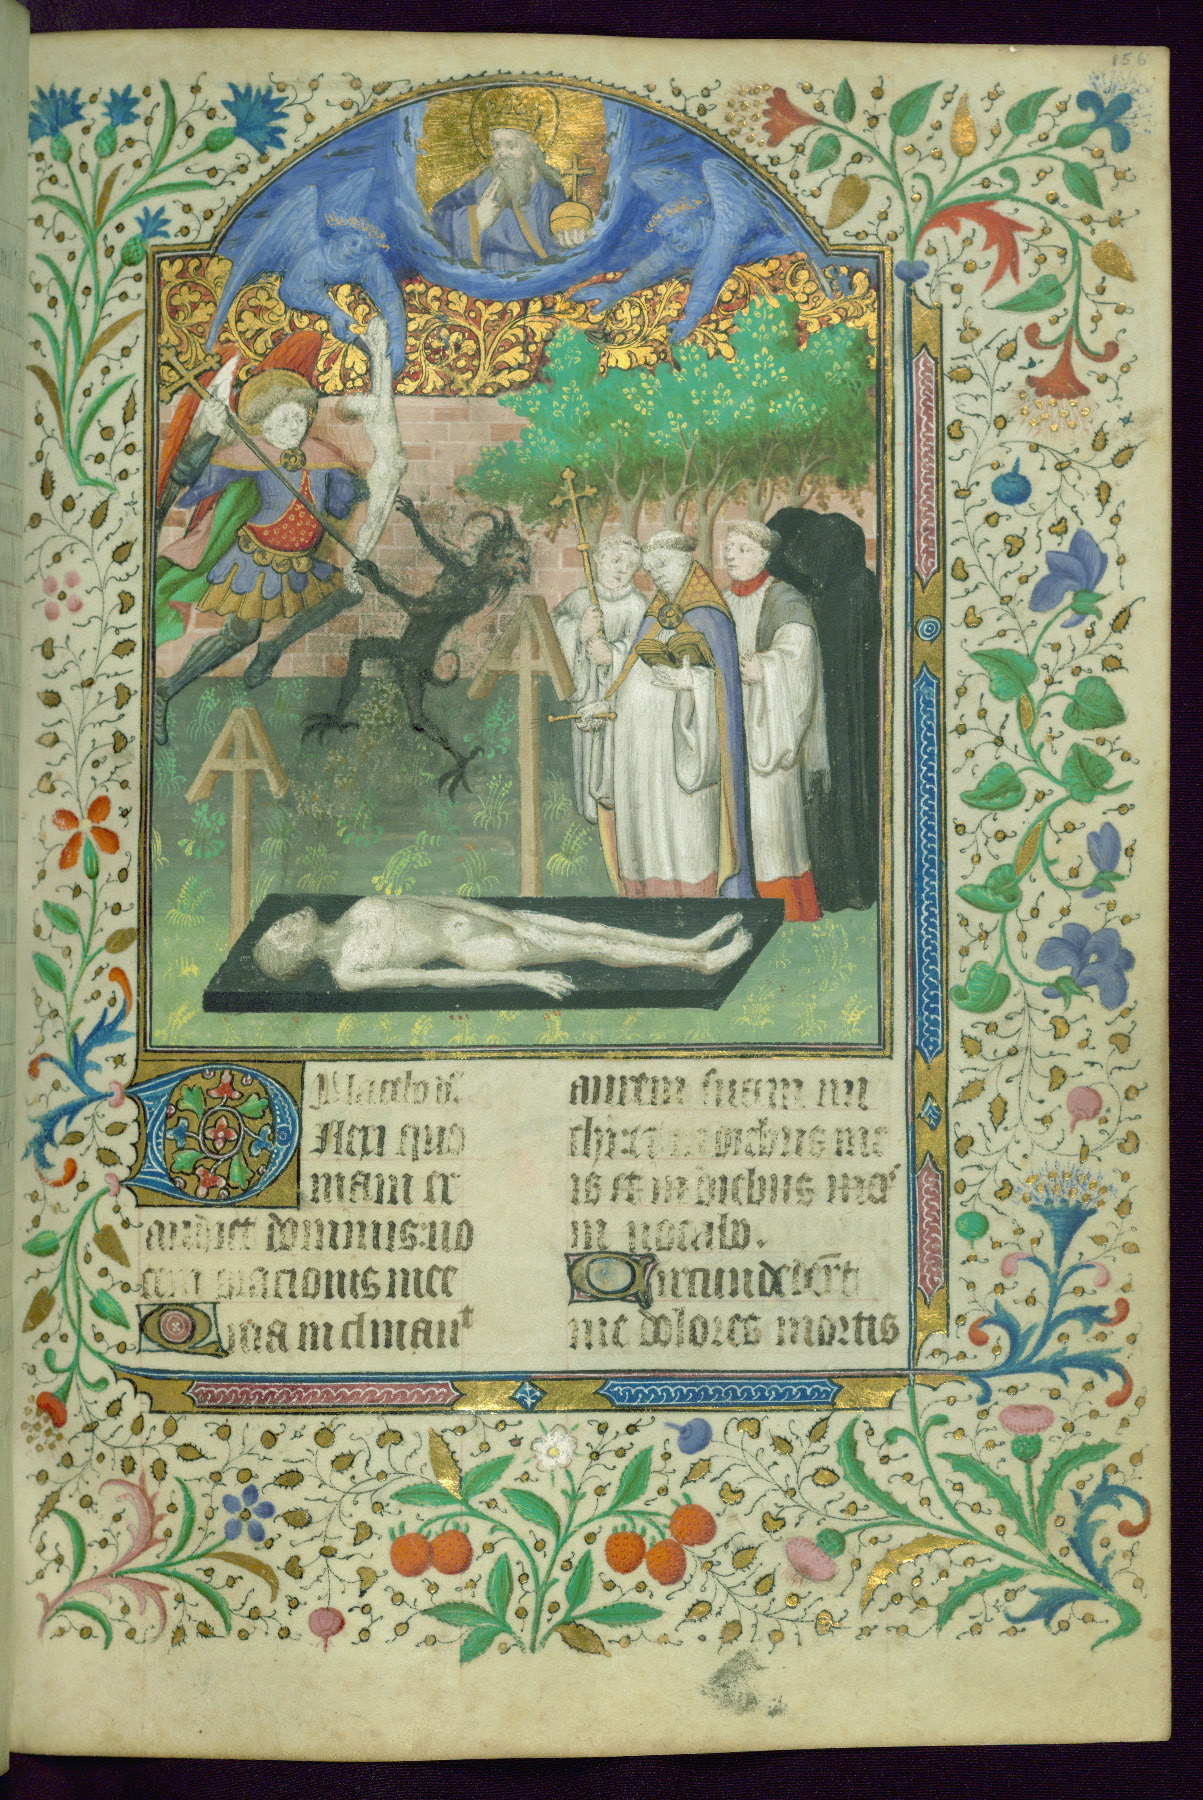 156
Placebo d.
Ilexi quo
niam ex
audiet dominus: uo
cem orationis mee
Quia inclinauit
aurem suam mi
chi: et in diebus me
is et in diebus meis
in uocabo.
Circundederunt
me dolores mortis